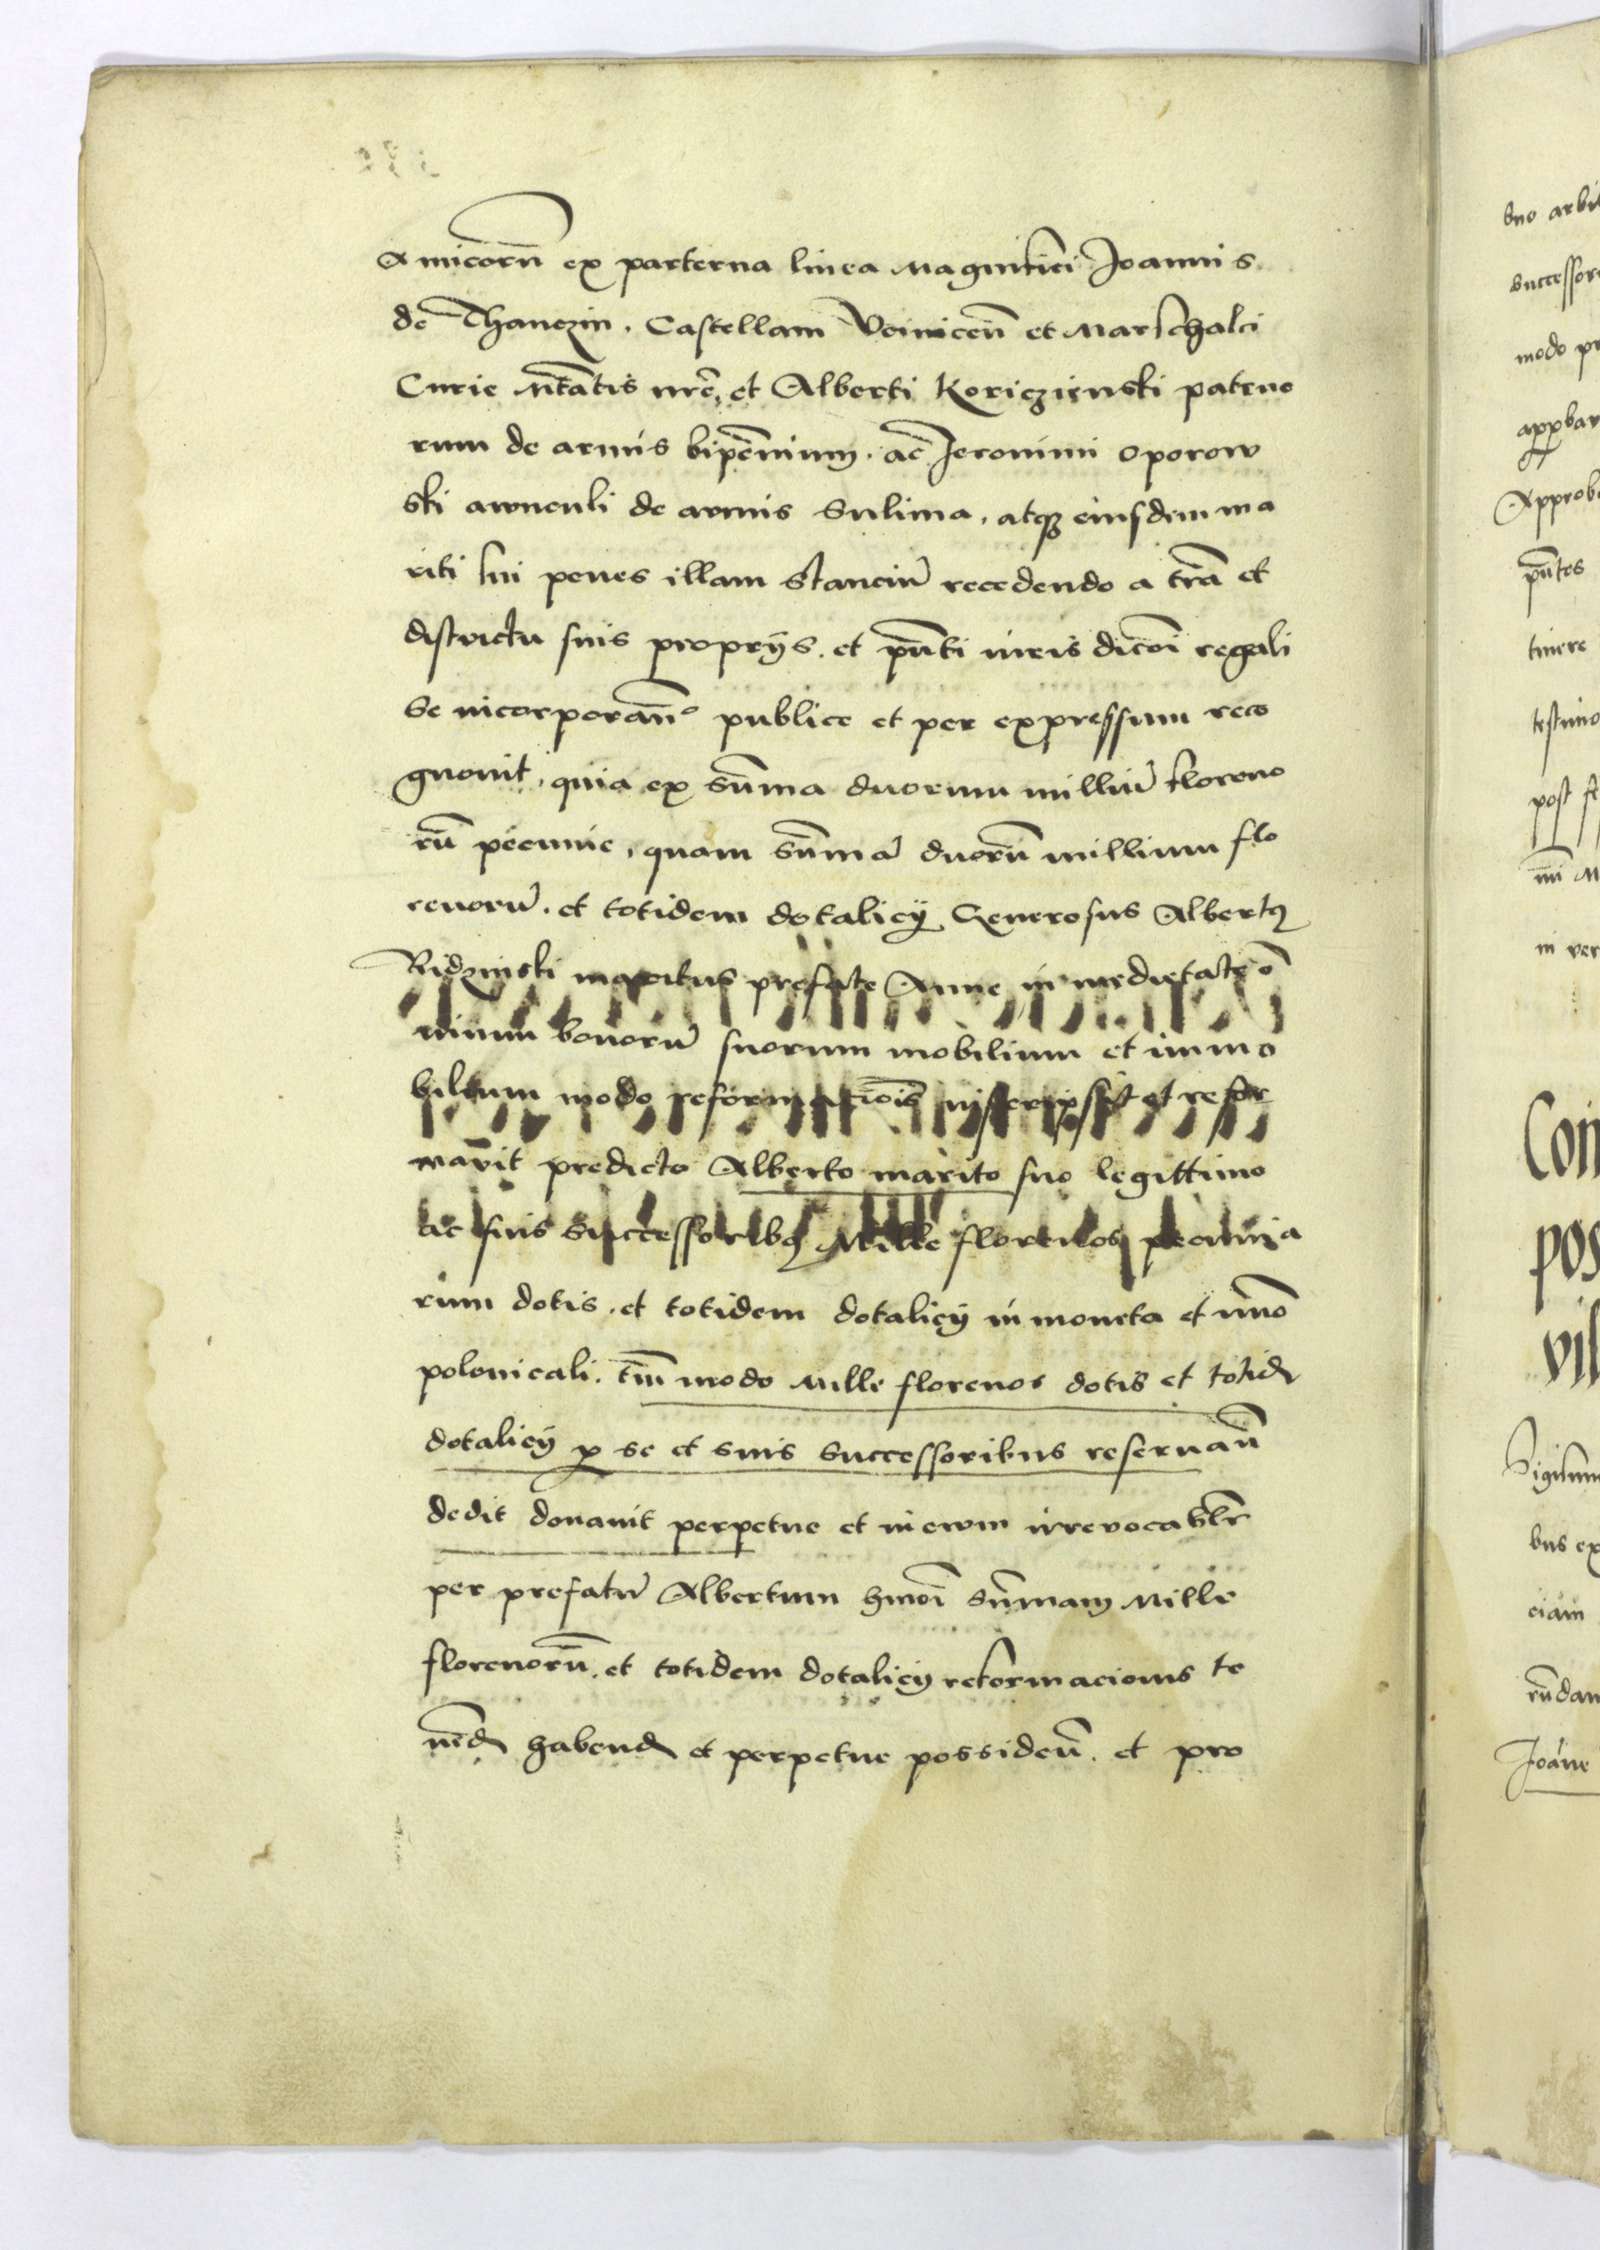 Amicorū ex parterna linea Magnifici Joannis
de Thanczin. Castellani Voinicen̄ et Marschalci
Curie Mtātis nrē, et Alberti Koriczienski patruo
rum de armis bipēnium. ac Jeronimi Oporow
ski awnculi de armis Sulima, atqꝫ eiusdem ma
riti sui penes illam stanciū recedendo a trā et
districtu suis proprijs. et pn̄ti iuris dicōi regali
se incorporan̄ᵒ publice et per expressum reco
gnouit, quia ex sūma duorum milliū floreno
rū pecunie, quam sūmā duorū millium flo
renorū. et totidem dotalicij Generosus Albertꝰ
Ridzinski maritus prefate Anne in medietate ō
nium bonorū suorum mobilium et immo
bilium modo reformatiōis inscripsit et refor
mavit predicto Alberto marito suo legittimo
ac suis successoribꝰ Mille florenos pecunia
rum dotis, et totidem dotalicij in moneta et nūo
polonicali. tm̄modo Mille florenos dotis et totid
dotalicij ꝓ se et suis successoribus reseruan̄
dedit donauit perpetue et in ewm irrevocabilr
per prefatū Albertum hmōi sūmam Mille
florenorū. et totidem dotalicij reformacionis te
nēd habend et perpetue possiden̄. et pro
suo arbi
successor
modo pr
appbav
Approb
pn̄tes
tinere
testimo
post f
in ver
Con
pos
vil
Sigism
bus ex
ciam
rn̄dam
Joāne